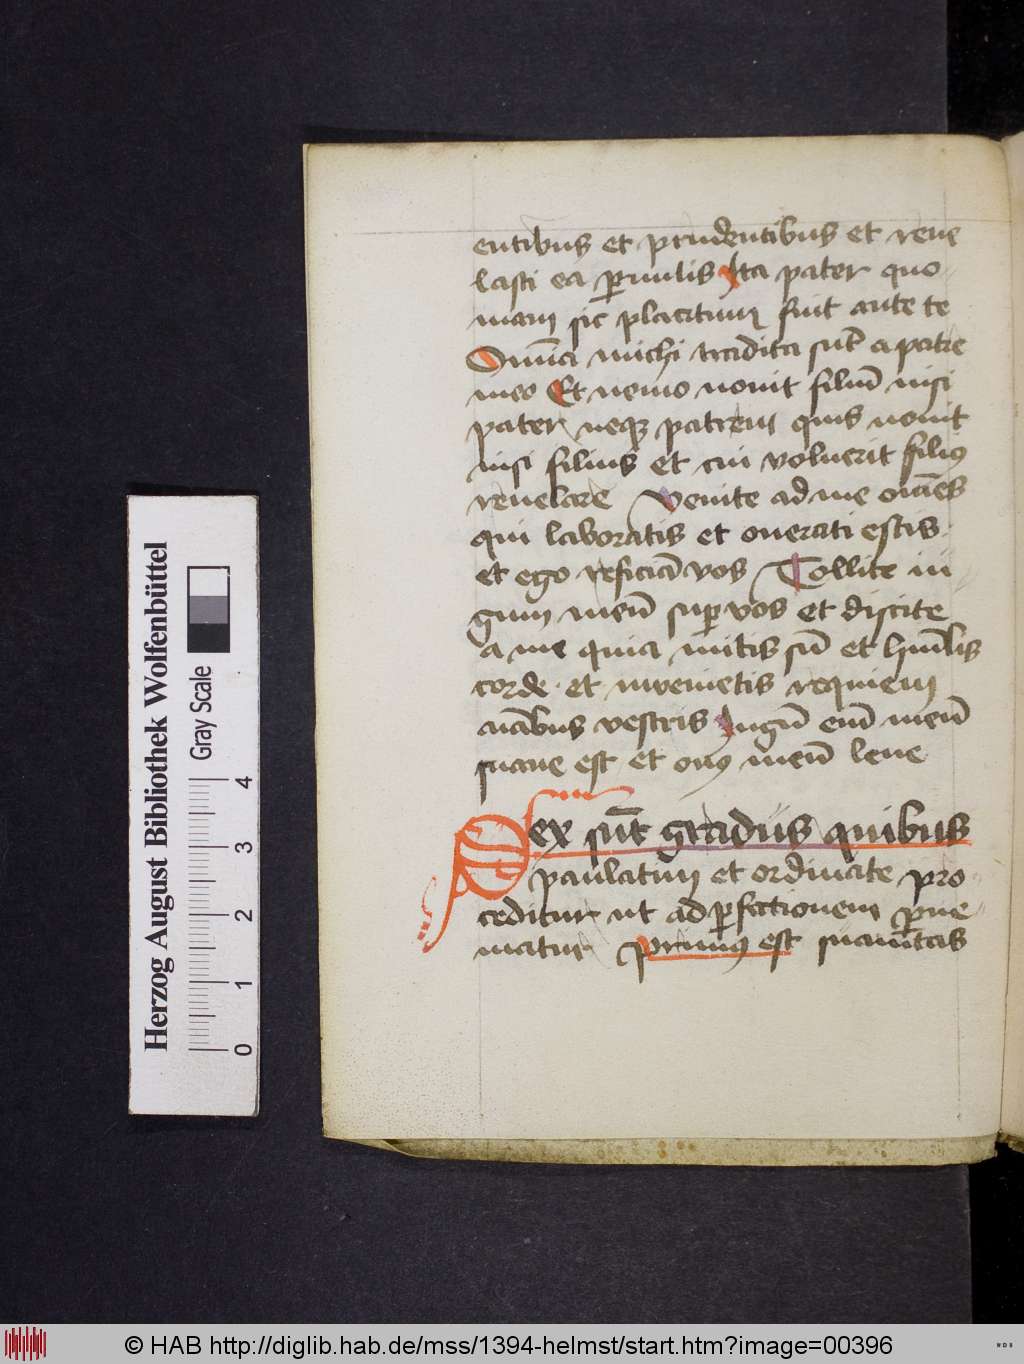 entibus et prudentibus et reue
lasti ea ꝑuulis Ita pater quo
niam sic placitum fuit ante te
Omīa michi tradita sūt a patre
meo Et nemo nouit filiū nisi
pater neqꝫ patrem quis nouit
nisi filius et cui voluerit filiꝰ
reuelare Venite ad me om̄es
qui laboratis et onerati estis
et ego reficiā vos Tollite iu
gum meū suꝑ vos et discite
a me quia mitis sū et hūilis
corde et inuenietis requiem
aīabus vestris Iugū eim̄ meū
suaue est et onꝰ meū leue
Sex sūt gradus quibus
paulatim et ordinate pro
ceditur ut ad ꝑfectionem ꝑue
niatur Primꝰ est suauitas
Herzog August Bibliothek Wolfenbüttel
Gray Scale
0 1 2 3 4
© HAB http://diglib.hab.de/mss/1394-helmst/start.htm?image=00396